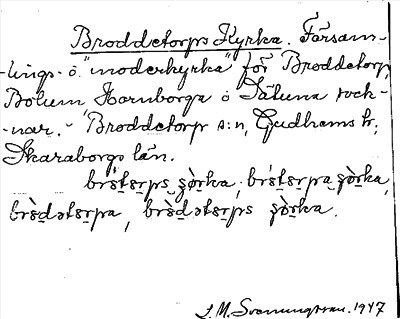 Broddetorps Kyrka. Försam-
-lings- o. "moderkyrka" för Broddetorp,
Bolum Hornborga o Sätuna sock-
-nar. - Broddetorp s:n, Gudhems hd,
Skaraborgs län.
brɩ̀tsrps çò̱rka, brɩ́tsrpa çò̱rka,
brèdətsrpa, brèdətsrps çò̱rka.
L. M. Svanungsson. 1947